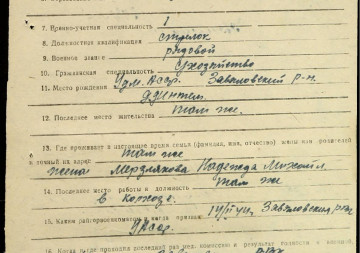 7. Военно-учетная специальность 1
8. Должностная квалификация стрелок
9. Военное звание рядовой
10. Гражданская специальность с/хозяйство
11. Место рождения Удм. Асср. Завьяловский р-н.
12. Последнее место жительства там же.
13. Где проживает в настоящее время семья (фамилия, имя, отчество) жены или родителей
и точный их адрес там же
жена Мерзлякова Надежда Михайл.
14. Последнее место работы и должность там же
в колхозе.
15. Каким райгорвоенкоматом и когда призван Завьяловским р-н
УАССР.
16. Когда и где проходил последний раз мед. комиссию и результат